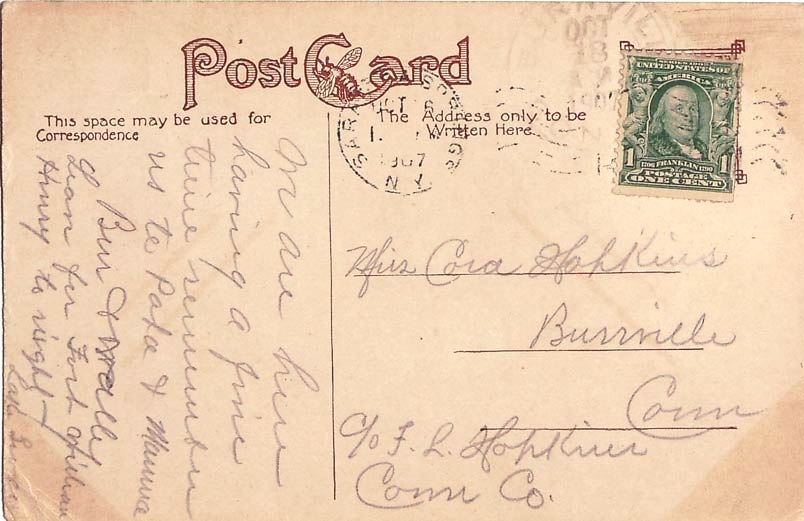 Post Card
This space may be used for
Correspondence
The Address only to be
Written Here.
SARATOGA SPRINGS
OCT 16
1907
N.Y.
OCT
18
1907
SERIES 1902
UNITED STATES OF
AMERICA
1 1706 FRANKLIN 1790 1
POSTAGE
ONE CENT
We are here
having a fine
time remember
us to Papa & Mamma
Bur &
Lean for Fort William
Henry to night
Miss Cora Hopkins
Burrville
Conn
c/o F. L. Hopkins
Conn Co.